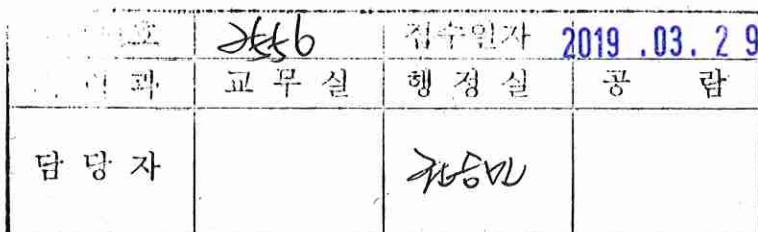 호 2556 접수일자 2019 .03. 29
과 교무실 행정실 공 람
담당자